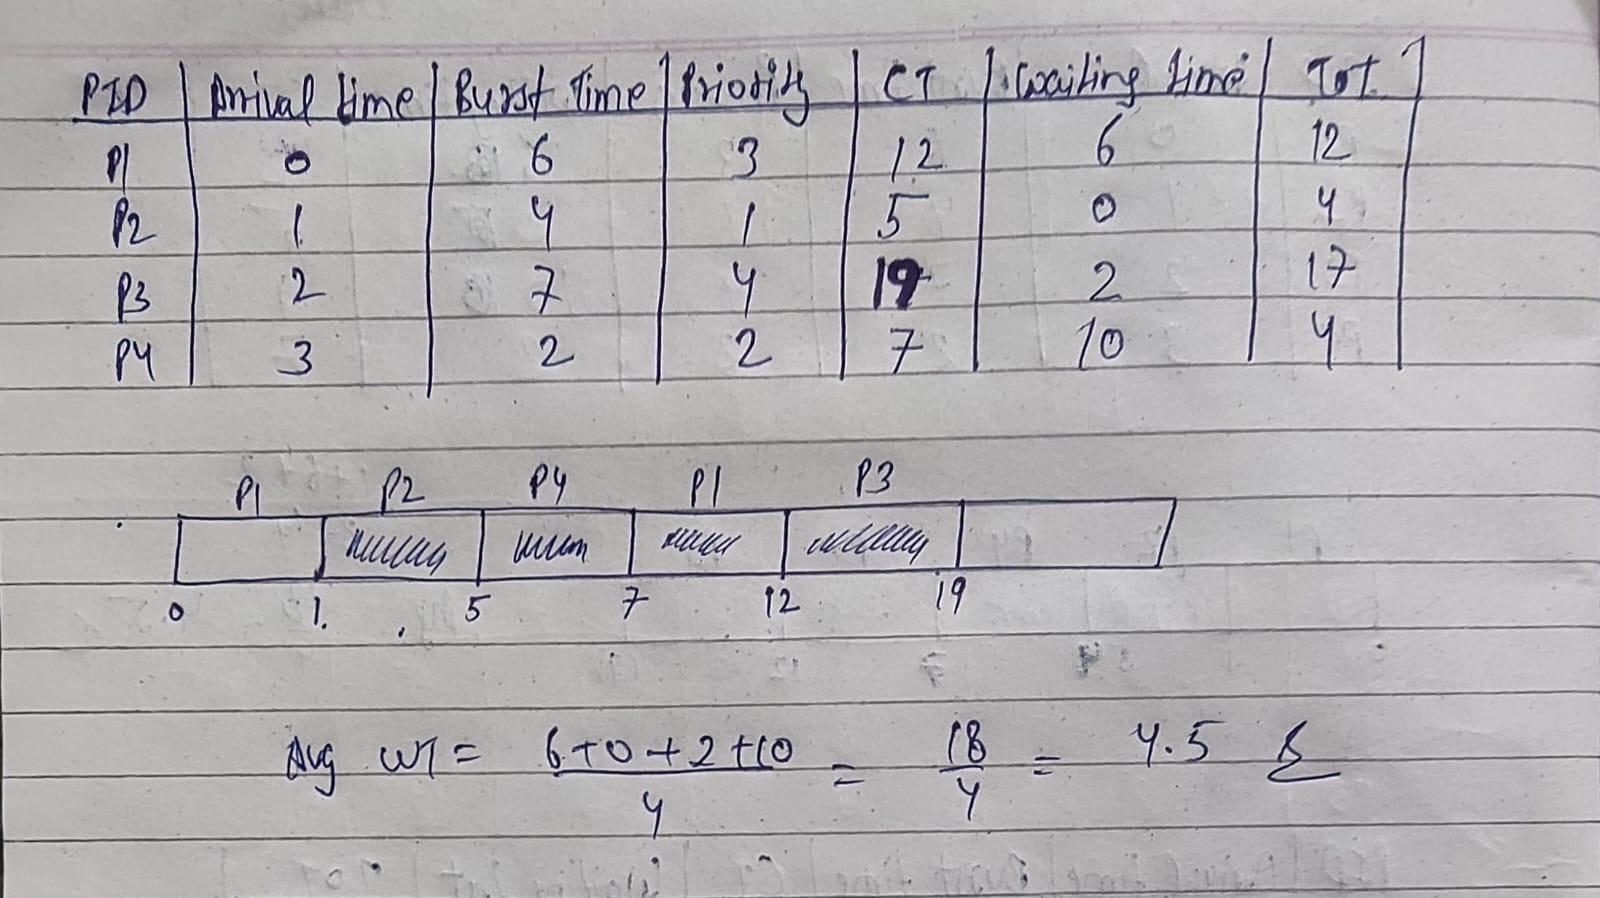 PID | Arrival time | Burst Time | Priority | CT | Waiting time | Tot
P1 0 6 3 12 6 12
P2 1 4 1 5 0 4
P3 2 7 4 19 2 17
P4 3 2 2 7 10 4
P1 P2 P4 P1 P3
0 1. 5 7 12 19
Avg WT = 6+0+2+10 / 4 = 18 / 4 = 4.5